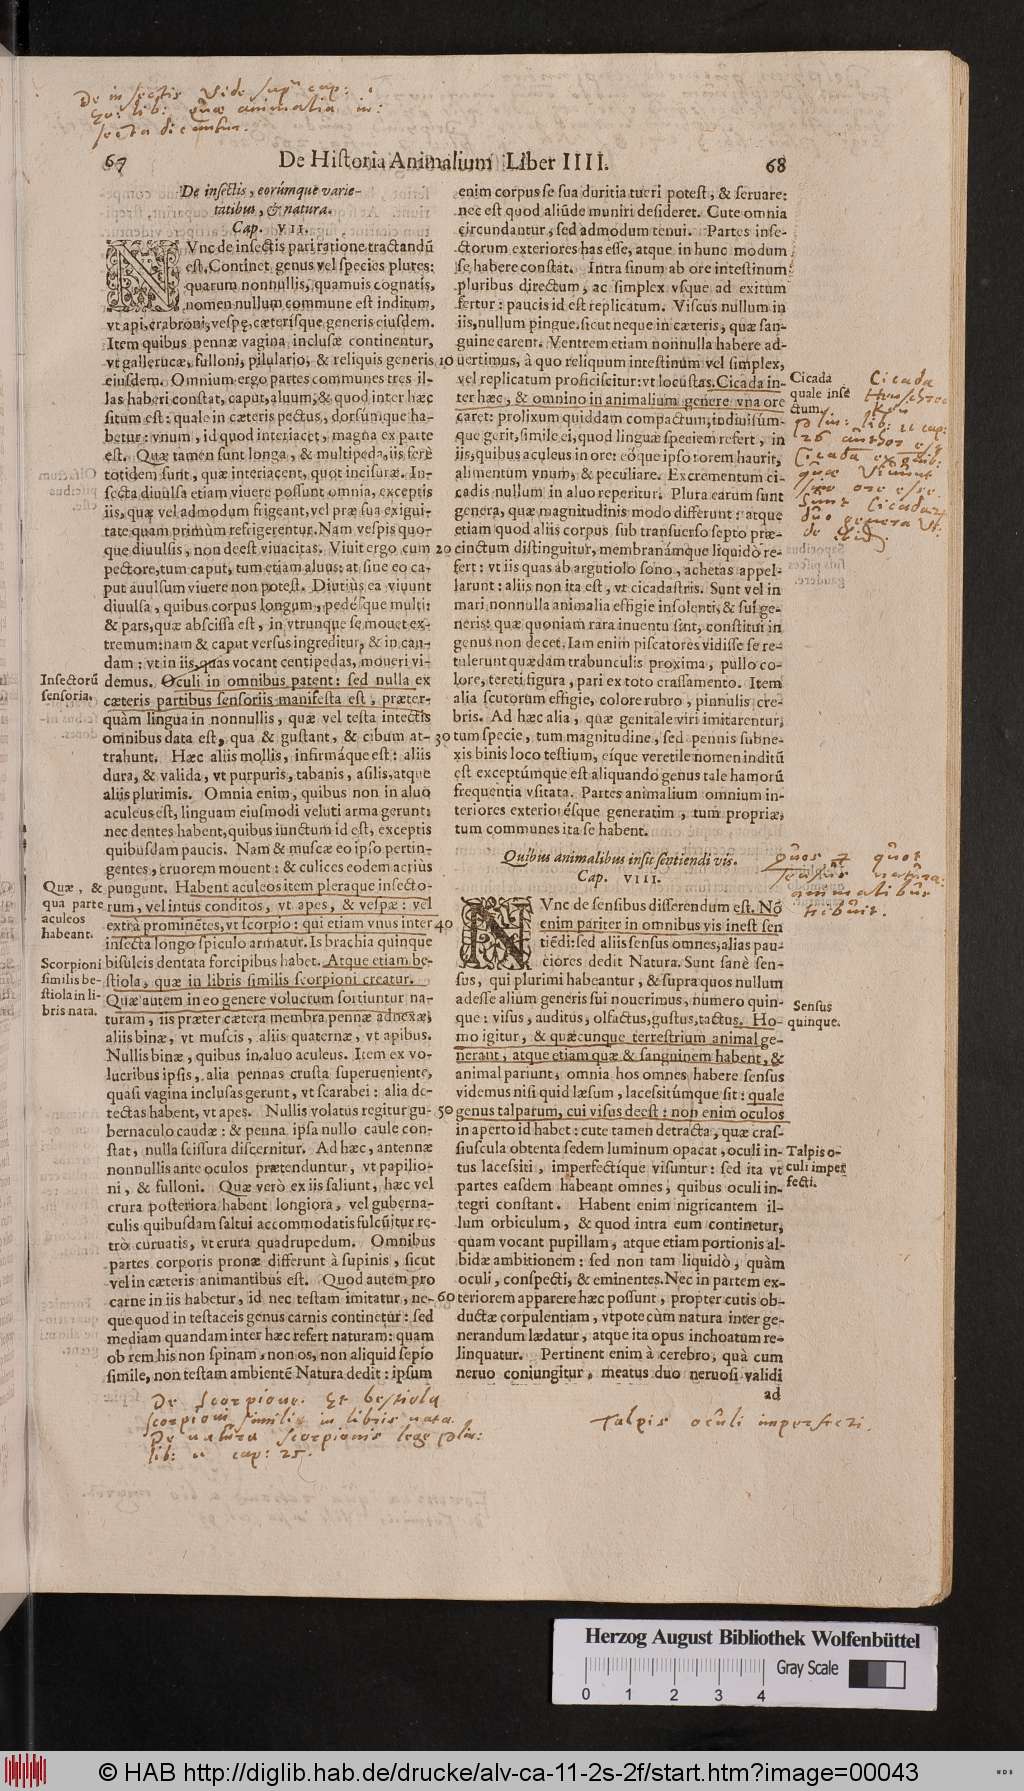 De insectis Vide supr cap: 1
lib: quae animalia in:
secta dicuntur.
67
De Historia Animalium Liber IIII.
68
De insectis, eorúmque varie-
tatibus, & natura.
Cap. VII.
NVnc de insectis pari ratione tractandũ
est. Continet genus vel species plures:
quarum nonnullis, quamuis cognatis,
nomen nullum commune est inditum,
vt api, crabroni, vespę, cæterisque generis eiusdem.
Item quibus pennæ vagina inclusæ continentur,
vt gallerucæ, fulloni, pilulario, & reliquis generis
eiusdem. Omnium ergo partes communes tres il-
las haberi constat, caput, aluum, & quod inter hæc
situm est: quale in cæteris pectus, dorsumque ha-
betur: vnum, id quod interiacet, magna ex parte
est. Quæ tamen sunt longa, & multipeda, iis ferè
totidem sunt, quæ interiacent, quot incisuræ. In-
secta diuulsa etiam viuere possunt omnia, exceptis
iis, quæ vel admodum frigeant, vel præ sua exigui-
tate quam primùm refrigerentur. Nam vespis quo-
que diuulsis, non deest viuacitas. Viuit ergo cum
pectore, tum caput, tum etiam aluus: at sine eo ca-
put auulsum viuere non potest. Diutiùs ea viuunt
diuulsa, quibus corpus longum, pedésque multi:
& pars, quæ abscissa est, in vtrunque se mouet ex-
tremum: nam & caput versus ingreditur, & in cau-
dam: vt in iis, quas vocant centipedas, moueri vi-
demus. Oculi in omnibus patent: sed nulla ex
cæteris partibus sensoriis manifesta est, præter-
quàm lingua in nonnullis, quæ vel testa intectis
omnibus data est, qua & gustant, & cibum at-
trahunt. Hæc aliis mollis, infirmáque est: aliis
dura, & valida, vt purpuris, tabanis, asilis, atque
aliis plurimis. Omnia enim, quibus non in aluo
aculeus est, linguam eiusmodi veluti arma gerunt:
nec dentes habent, quibus iunctum id est, exceptis
quibusdam paucis. Nam & muscæ eo ipso pertin-
gentes, cruorem mouent: & culices eodem acriùs
pungunt. Habent aculeos item pleraque insecto-
rum, vel intus conditos, vt apes, & vespæ: vel
extrà prominẽtes, vt scorpio: qui etiam vnus inter
insecta longo spiculo armatur. Is brachia quinque
bisulcis dentata forcipibus habet. Atque etiam be-
stiola, quæ in libris similis scorpioni creatur.
Quæ autem in eo genere volucrum sortiuntur na-
turam, iis præter cætera membra pennæ adnexæ,
aliis binæ, vt muscis, aliis quaternæ, vt apibus.
Nullis binæ, quibus in aluo aculeus. Item ex vo-
lucribus ipsis, alia pennas crusta superueniente,
quasi vagina inclusas gerunt, vt scarabei: alia de-
tectas habent, vt apes. Nullis volatus regitur gu-
bernaculo caudæ: & penna ipsa nullo caule con-
stat, nulla scissura discernitur. Ad hæc, antennæ
nonnullis ante oculos prætenduntur, vt papilio-
ni, & fulloni. Quæ verò ex iis saliunt, hæc vel
crura posteriora habent longiora, vel guberna-
culis quibusdam saltui accommodatis fulcũtur re-
trò curuatis, vt crura quadrupedum. Omnibus
partes corporis pronæ differunt à supinis, sicut
vel in cæteris animantibus est. Quod autem pro
carne in iis habetur, id nec testam imitatur, ne-
que quod in testaceis genus carnis continetur: sed
mediam quandam inter hæc refert naturam: quam
ob rem his non spinam, non os, non aliquid sepio
simile, non testam ambientẽ Natura dedit: ipsum
Insectorũ
sensoria.
Quæ, &
qua parte
aculeos
habeant.
Scorpioni
similis be-
stiola in li-
bris nata.
10
20
30
40
50
60
enim corpus se sua duritia tueri potest, & seruare:
nec est quod aliũde muniri desideret. Cute omnia
circundantur, sed admodum tenui. Partes inse-
ctorum exteriores has esse, atque in hunc modum
se habere constat. Intra sinum ab ore intestinum
pluribus directum, ac simplex vsque ad exitum
fertur: paucis id est replicatum. Viscus nullum in
iis, nullum pingue, sicut neque in cæteris, quæ san-
guine carent. Ventrem etiam nonnulla habere ad-
uertimus, à quo reliquum intestinum vel simplex,
vel replicatum proficiscitur: vt locustas. Cicada in-
ter hæc, & omnino in animalium genere vna ore
caret: prolixum quiddam compactum, indiuisúm-
que gerit, simile ei, quod linguæ speciem refert, in
iis, quibus aculeus in ore: eo que ipso rorem haurit,
alimentum vnum, & peculiare. Excrementum ci-
cadis nullum in aluo reperitur. Plura earum sunt
genera, quæ magnitudinis modo differunt: atque
etiam quod aliis corpus sub transuerso septo præ-
cinctum distinguitur, membranámque liquidò re-
fert: vt iis quas ab argutiolo sono, achetas appel-
larunt: aliis non ita est, vt cicadastris. Sunt vel in
mari nonnulla animalia effigie insolenti, & sui ge-
neris: quæ quoniam rara inuentu sint, constitui in
genus non decet. Iam enim piscatores vidisse se re-
tulerunt quædam trabunculis proxima, pullo co-
lore, tereti figura, pari ex toto crassamento. Item
alia scutorum effigie, colore rubro, pinnulis cre-
bris. Ad hæc alia, quæ genitale viri imitarentur,
tum specie, tum magnitudine, sed pennis subne-
xis binis loco testium, eíque veretile nomen inditũ
est exceptúmque est aliquando genus tale hamorũ
frequentia vsitata. Partes animalium omnium in-
teriores exteriorésque generatim, tum propriæ,
tum communes ita se habent.
Quibus animalibus insit sentiendi vis.
Cap. VIII.
NVnc de sensibus disserendum est. Nõ
enim pariter in omnibus vis inest sen
tiẽdi: sed aliis sensus omnes, alias pau-
ciores dedit Natura. Sunt sanè sen-
sus, qui plurimi habeantur, & supra quos nullum
adesse alium generis sui nouerimus, numero quin-
que: visus, auditus, olfactus, gustus, tactus. Ho-
mo igitur, & quæcunque terrestrium animal ge-
nerant, atque etiam quæ & sanguinem habent, &
animal pariunt, omnia hos omnes habere sensus
videmus nisi quid læsum, lacessitúmque sit: quale
genus talparum, cui visus deest: non enim oculos
in aperto id habet: cute tamen detracta, quæ cras-
siuscula obtenta sedem luminum opacat, oculi in-
tus lacessiti, imperfectíque visuntur: sed ita vt
partes easdem habeant omnes, quibus oculi in-
tegri constant. Habent enim nigricantem il-
lum orbiculum, & quod intra eum continetur,
quam vocant pupillam, atque etiam portionis al-
bidæ ambitionem: sed non tam liquidò, quàm
oculi, conspecti, & eminentes. Nec in partem ex-
teriorem apparere hæc possunt, propter cutis ob-
ductæ corpulentiam, vtpote cùm natura inter ge-
nerandum lædatur, atque ita opus inchoatum re-
linquatur. Pertinent enim à cerebro, quà cum
neruo coniungitur, meatus duo neruosi validi
ad
Cicada
quale inse
ctum.
Cicada
plin: lib: 11 cap:
26 author est
Cicada ex animalib:
quae Vivunt
sine ore esse.
Sunt Cicadar
duo genera Vt.
Quos et quot
sensus natura
animalibus
tribuit.
Sensus
quinque.
Talpis o-
culi imper
fecti.
De Scorpione. Et bestiola
scorpioni similis in libris nata.
De natura scorpionis lege Plin:
lib: 11 cap: 25.
Talpis oculi imperfecti.
Herzog August Bibliothek Wolfenbüttel
Gray Scale
0 1 2 3 4
© HAB http://diglib.hab.de/drucke/alv-ca-11-2s-2f/start.htm?image=00043